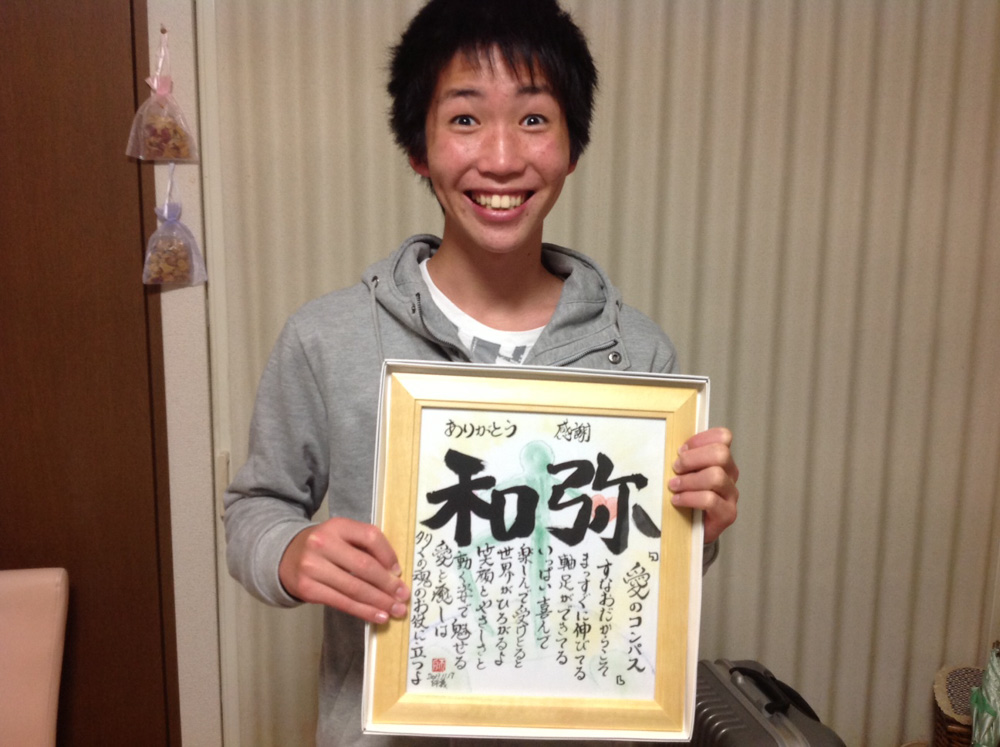 ありがとう 感謝
和弥
『愛のコンパス』
すなおだからこそ
まっすぐに伸びてる
軸足ができてる
いっぱい喜んで
楽しんで受けとると
世界がひろがるよ
笑顔とやさしさと
動く姿で魅せる
愛と癒しは
多くの魂のお役に立つよ